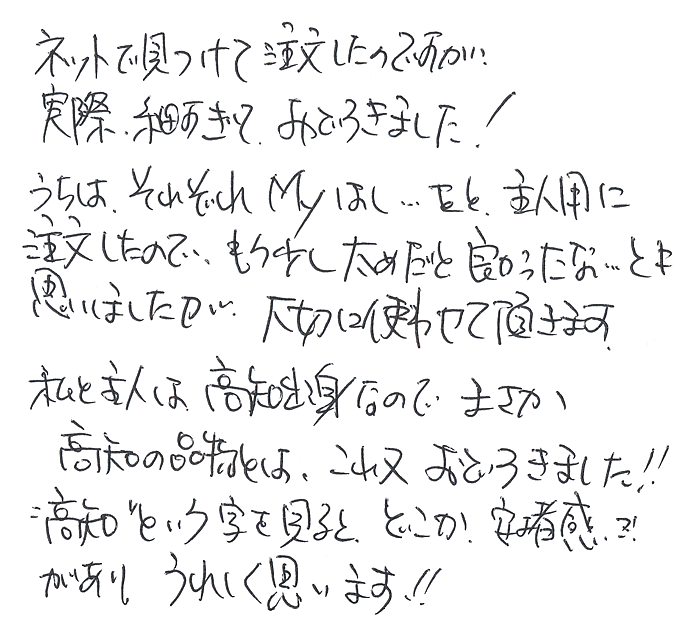 ネットで見つけて注文したのですが、
実際、細すぎて、おどろきました!
うちは、それぞれMyはし…なもと、主人用に
注文したので、もう少し太めだと良かったな…とは
思いましたが、大切に使わせて頂きます。
私と主人は、高知出身なので まさか、
高知の品物とは、これ又 おどろきました!!
"高知"という字を見ると、どこか、安堵感、?!
があり うれしく思います!!